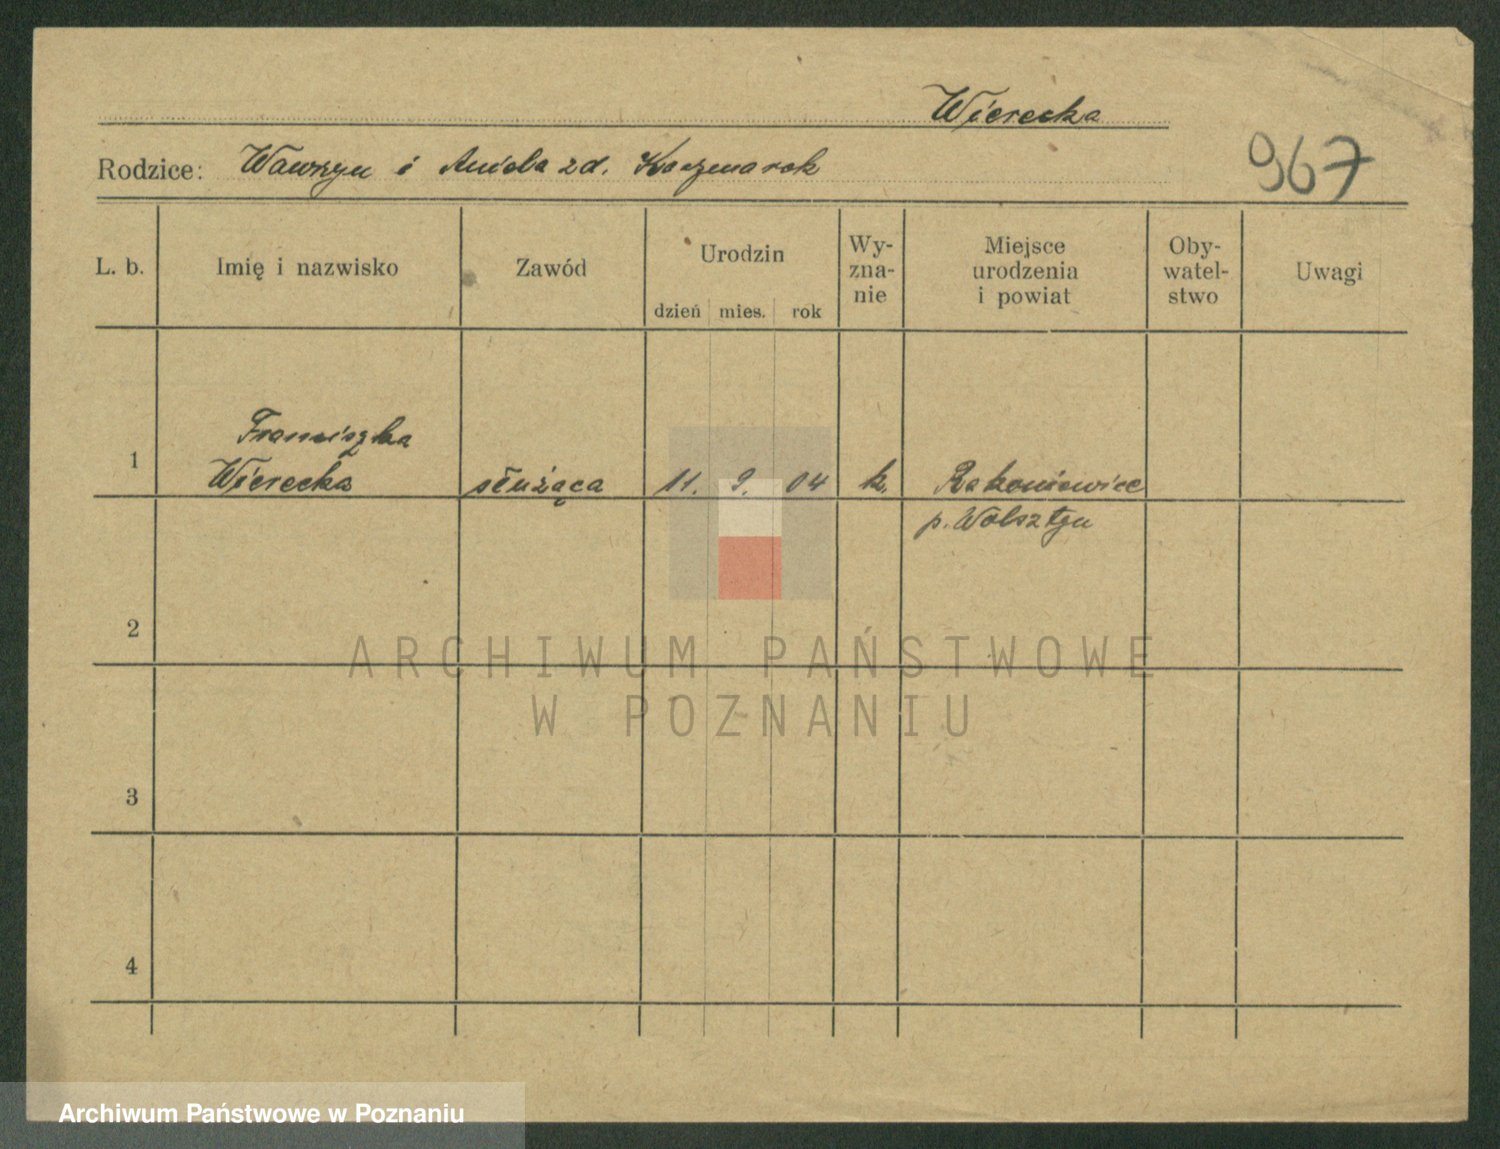 Wierecka
Rodzice: Wawrzyn i Aniela zd. Kaczmarek
967
L. b.
Imię i nazwisko
Zawód
Urodzin
dzień mies. rok
Wy-
zna-
nie
Miejsce
urodzenia
i powiat
Oby-
watel-
stwo
Uwagi
1
Franciszka
Wierecka
służąca
11. 9. 04
k.
Rakoniewice
p. Wolsztyn
2
ARCHIWUM PAŃSTWOWE
W POZNANIU
3
4
Archiwum Państwowe w Poznaniu